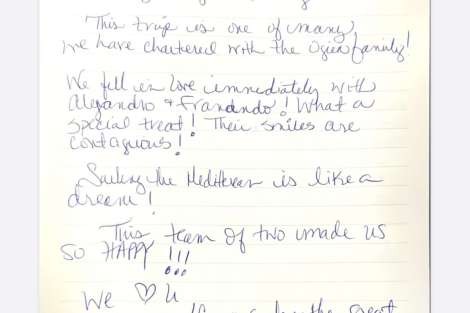 This trip is one of many
we have chartered with the Ogier family!
We fell in love immediately with
Alejandro & Franando! What a
special treat! Their smiles are
contagious!
Sailing the Mediterean is like a
dream!
This team of two made us
SO HAPPY!!!
We ♡ U
for the great